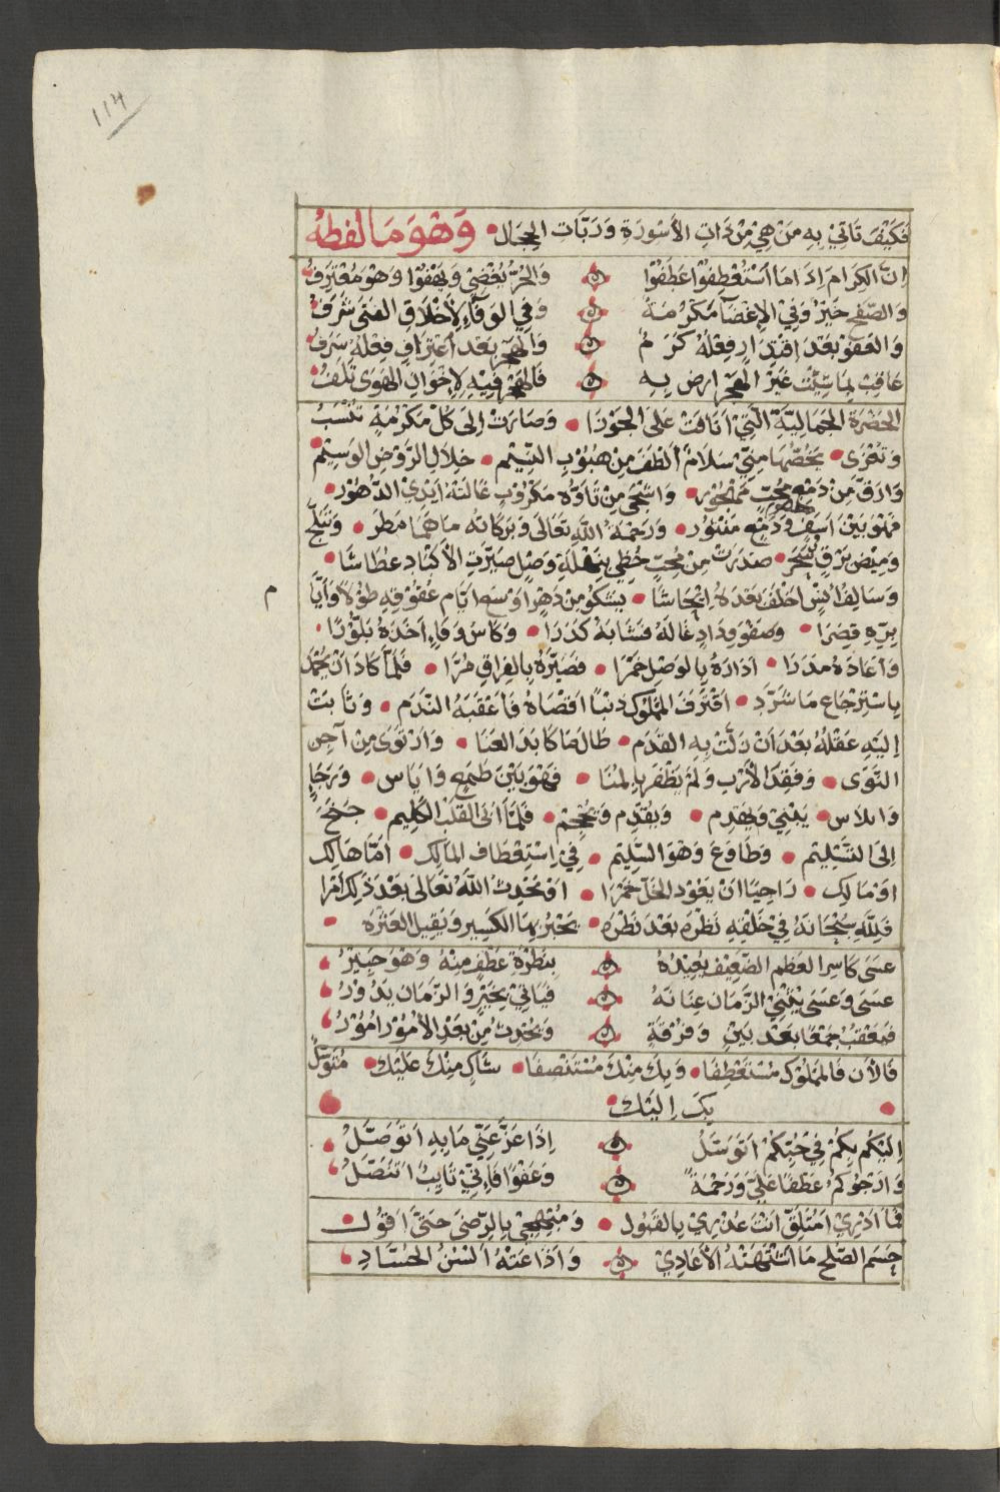 114
فَكَيْفَ تَاتِيْ بِهِ مَنْ هِيَ مِنْ ذَاتِ الأَسْوِرَةِ وَرَبَّاتِ الحِجَال • وَهْوَ مَا لفظهُ
اِنَّ الكِرَامَ اِذَا مَا اسْتُعْطِفُوْا عَطَفُوْا ۞ وَالحُرُّ يُغْضِيْ وَيَعْفُوْا وَهْوَ مُقْتَرِفُ
وَالصَّفْحُ خَيْرٌ وَفِي الاِغْضَآ مَكْرُمَةٌ ۞ وَفِي الوَفَآءِ لأَخْلَاقِ الفَتَى شَرَفُ
وَالعَفْوُ بَعْدَ اقْتِدَارٍ فِعْلهُ كَرَمٌ ۞ وَالهَجْرُ بَعْدَ اعْتِرَافٍ فِعْلُهُ سَرَفُ
عَاقِبْ بِمَا شِيْتَ غَيْرَ الهَجْرِ ارض بِهِ ۞ فَالهَجْرُ فِيْهِ لِإخْوَانِ الهَوَى تَلَفُ
الحَضْرَةِ الجَمَالِيَّةِ الَّتِيْ انَافَتْ عَلَى الجَوْزَا • وَصَارَتْ اِلَى كُلِّ مَكْرُمَةٍ تُنْسَبُ
وَتُعْزَى • يَخُصُّهَا مِنِّيْ سَلَامٌ الْطَفُ مِنْ هُبُوْبِ النَّسِيْم • خِلَالَ الرَّوْضِ الوَسِيْم
وَارَقُّ مِنْ دَمْعِ مُحِبٍّ مَهْجُوْر • وَاشْجَى مِنْ تَاَوُّهِ مَكْرُوْبٍ غَالَتْهُ ايْدِيْ الدُّهُوْر •
فَهْوَ بَيْنَ اسَفٍ وَدَمْعٍ مَنْثُوْر • وَرَحْمَةُ اللهِ تَعَالَى وَبَرَكَاتُهُ مَا هَمَا مَطَر •
وَمِيْضُ بَرْقٍ • صَدَرَتْ مِنْ مُحِبٍّ وَصْلٍ صَيَّرَتِ الأَكْبَادَ عِطَاشَا •
وَسَالِفُ انْسٍ اخْلَفَ بَعْدَهُ اِيْحَاشَا • يَشْكُوْ مِنْ دَهْرٍ اوْسَعَ ايَّامَ عُقُوْقِهِ طُوْلًا وَايَّا م
بِرِّهِ قِصَرَا • وَصَفْوِ وِدَادٍ غَالَهُ فَشَابَهُ كَدَرَا • وَكَاسِ وَفَآءٍ اَخَذَهُ بَلَّوْرًا •
وَاَعَادَهُ مَدَرَا • اَدَارَهُ بِالوَصْلِ خَمْرَا • فَصَيَّرَهُ بِالفِرَاقِ مُرَّا • فَلَمَّا كَادَ انْ يَحْمَدَ
بِاسْتِرْجَاعِ مَا شَرَّدِ • اقْتَرَفَ المَمْلُوْكُ ذَنْبًا اقْصَاهُ فَاَعْقَبَهُ النَّدَم • وَثَابَتْ
اِلَيْهِ عَقْلُهُ بَعْدَ اَنْ زَلَّتْ بِهِ القَدَم • طَالَمَا كَابَدَ العَنَا • وَارْتَوَى مِنْ آجِنِ
النَّوَى • وَفَقَدَ الأرَبَ وَلَمْ يَظْفَرْ بِالمُنَا • فَهْوَ بَيْنَ طَمَعٍ وَايَاس • وَرَجَاءٍ
وَابلَاس • يَنْثَنِيْ وَيُقْدِم • وَيُقَدِّم وَيُحْجِم • فَلَمَّا اَبَى القَلْبُ الكَلِيْم • جَنَحَ
اِلَى التَّسْلِيْم • وَطَاوَعَ وَهْوَ السَّلِيْم • فِيْ اِسْتِعْطَافِ المَالِك • اَمَّا هَالِك
اوْ مَالِك • رَاجِيًا انْ يَعُوْدَ الخَلُّ خَمْرَا • اوْ يُحْدِثُ اللهُ تَعَالَى بَعْدَ ذَلِكَ اَمْرَا
فَلِلَّهِ سُبْحَانَهُ فِيْ خَلْقِهِ نَظْرَه بَعْدَ نَظْرَه • يَجْبُرُ بِهَا الكَسِيْر وَيُقِيْل العَثْرَه
عَسَى كَاسِرُ العَظْمِ الضَّعِيْفِ يُعِيْدُهُ ۞ بِنَظْرَةِ عَطْفٍ مِنْهُ وَهْوَ جَبِيْرُ
عَسَى وَعَسَى يَثْنِيْ الزَّمَانُ عِنَانَهُ ۞ فَيَاتِيْ بِخَيْرٍ وَالزَّمَانُ يَدُوْرُ
فَيُعْقِبُ جَمْعًا بَعْدَ بَيْنٍ وَفُرْقَةٍ ۞ وَيُحْدِثُ مِنْ بَعْدِ الأُمُوْرِ اُمُوْرُ
فَالآن فَالمَمْلُوْكُ مُسْتَعْطِفًا • وَبِكَ مِنْكَ مُسْتَنْصِفَا • شَاكٍ مِنْكَ عَلَيْكَ • مُتَوَسِّلٌ
بِكَ اِلَيْكَ
اِلَيْكُمْ بِكُمْ فِيْ حُبِّكُمْ اَتَوَسَّلُ ۞ اِذَا عَزَّ عَنِّيْ مَا بِهِ اَتَوَصَّلُ
وَارْجُوْكُمْ عَطْفًا عَلَيَّ وَرَحْمَةً ۞ وَعَفْوًا فَاِنِّيْ تَايِبٌ اَتَنَصَّلُ
اَنْتَ عُذْرِيْ بِالقَبُول • وَمُبْهِجِيْ بِالرِّضَى حَتَّى اَقُوْل
حَسَمَ الصُّلْحُ مَا اشْتَهَتْهُ الأَعَادِيْ ۞ وَاَذَاعَتْهُ اَلْسُنُ الحُسَّادِ